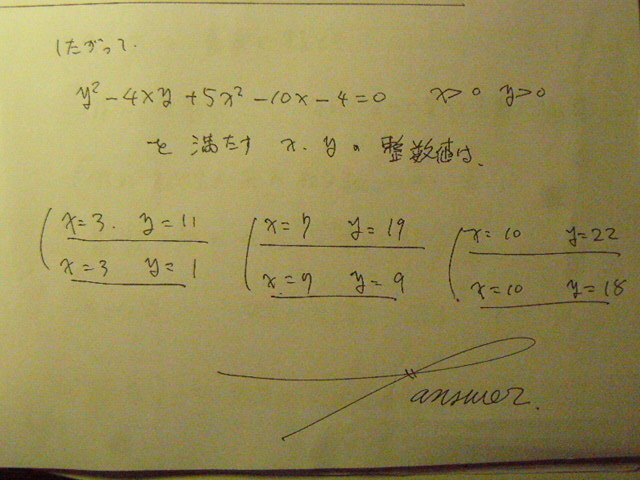 したがって.
y² - 4xy + 5x² - 10x - 4 = 0 x > 0 y > 0
を 満たす x, y の 整数値は、
x = 3. y = 11 x = 7 y = 19 x = 10 y = 22
x = 3 y = 1 x = 7 y = 9 x = 10 y = 18
answer.